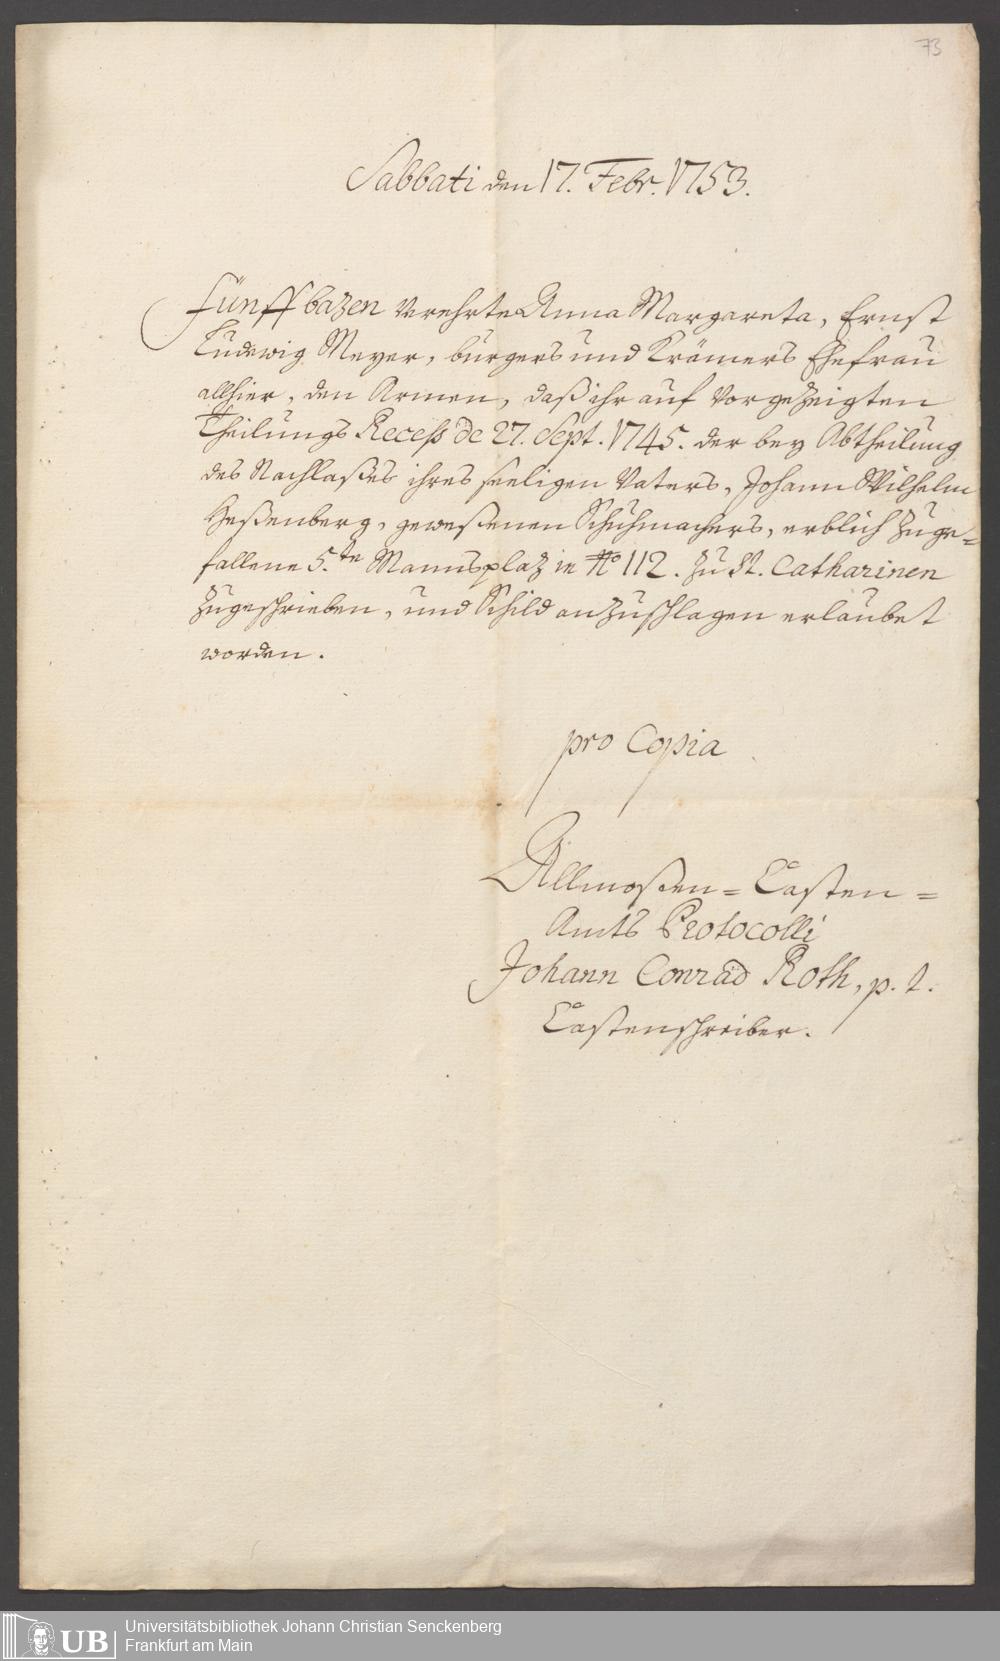 73
Sabbati den 17. Febr. 1753.
Fünff bazen Verehrte Anna Margareta, Ernst
Ludewig Meyer, burgers und Krämers Ehefrau
allhier, den Armen, daß ihr auf Vorgezeigten
Theilungs Recess de 27. Sept. 1745. der bey Abtheilung
des Nachlaßes ihres seeligen Vaters, Johann Wilhelm
Heßenberg, geweßenen Schuhmachers, erblich zuge=
fallene 5.te Mannsplaz in No 112. zu St. Catharinen
zugeschrieben, und Schild anzuschlagen erlaubet
worden.
pro Copia
Allmoßen=Casten=
Amts Protocolli
Johann Conrad Roth, p. t.
Castenschreiber.
UB
Universitätsbibliothek Johann Christian Senckenberg
Frankfurt am Main